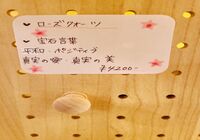 ローズクォーツ
宝石言葉
平和・ポジティブ
真実の愛・真実の美
¥4200-